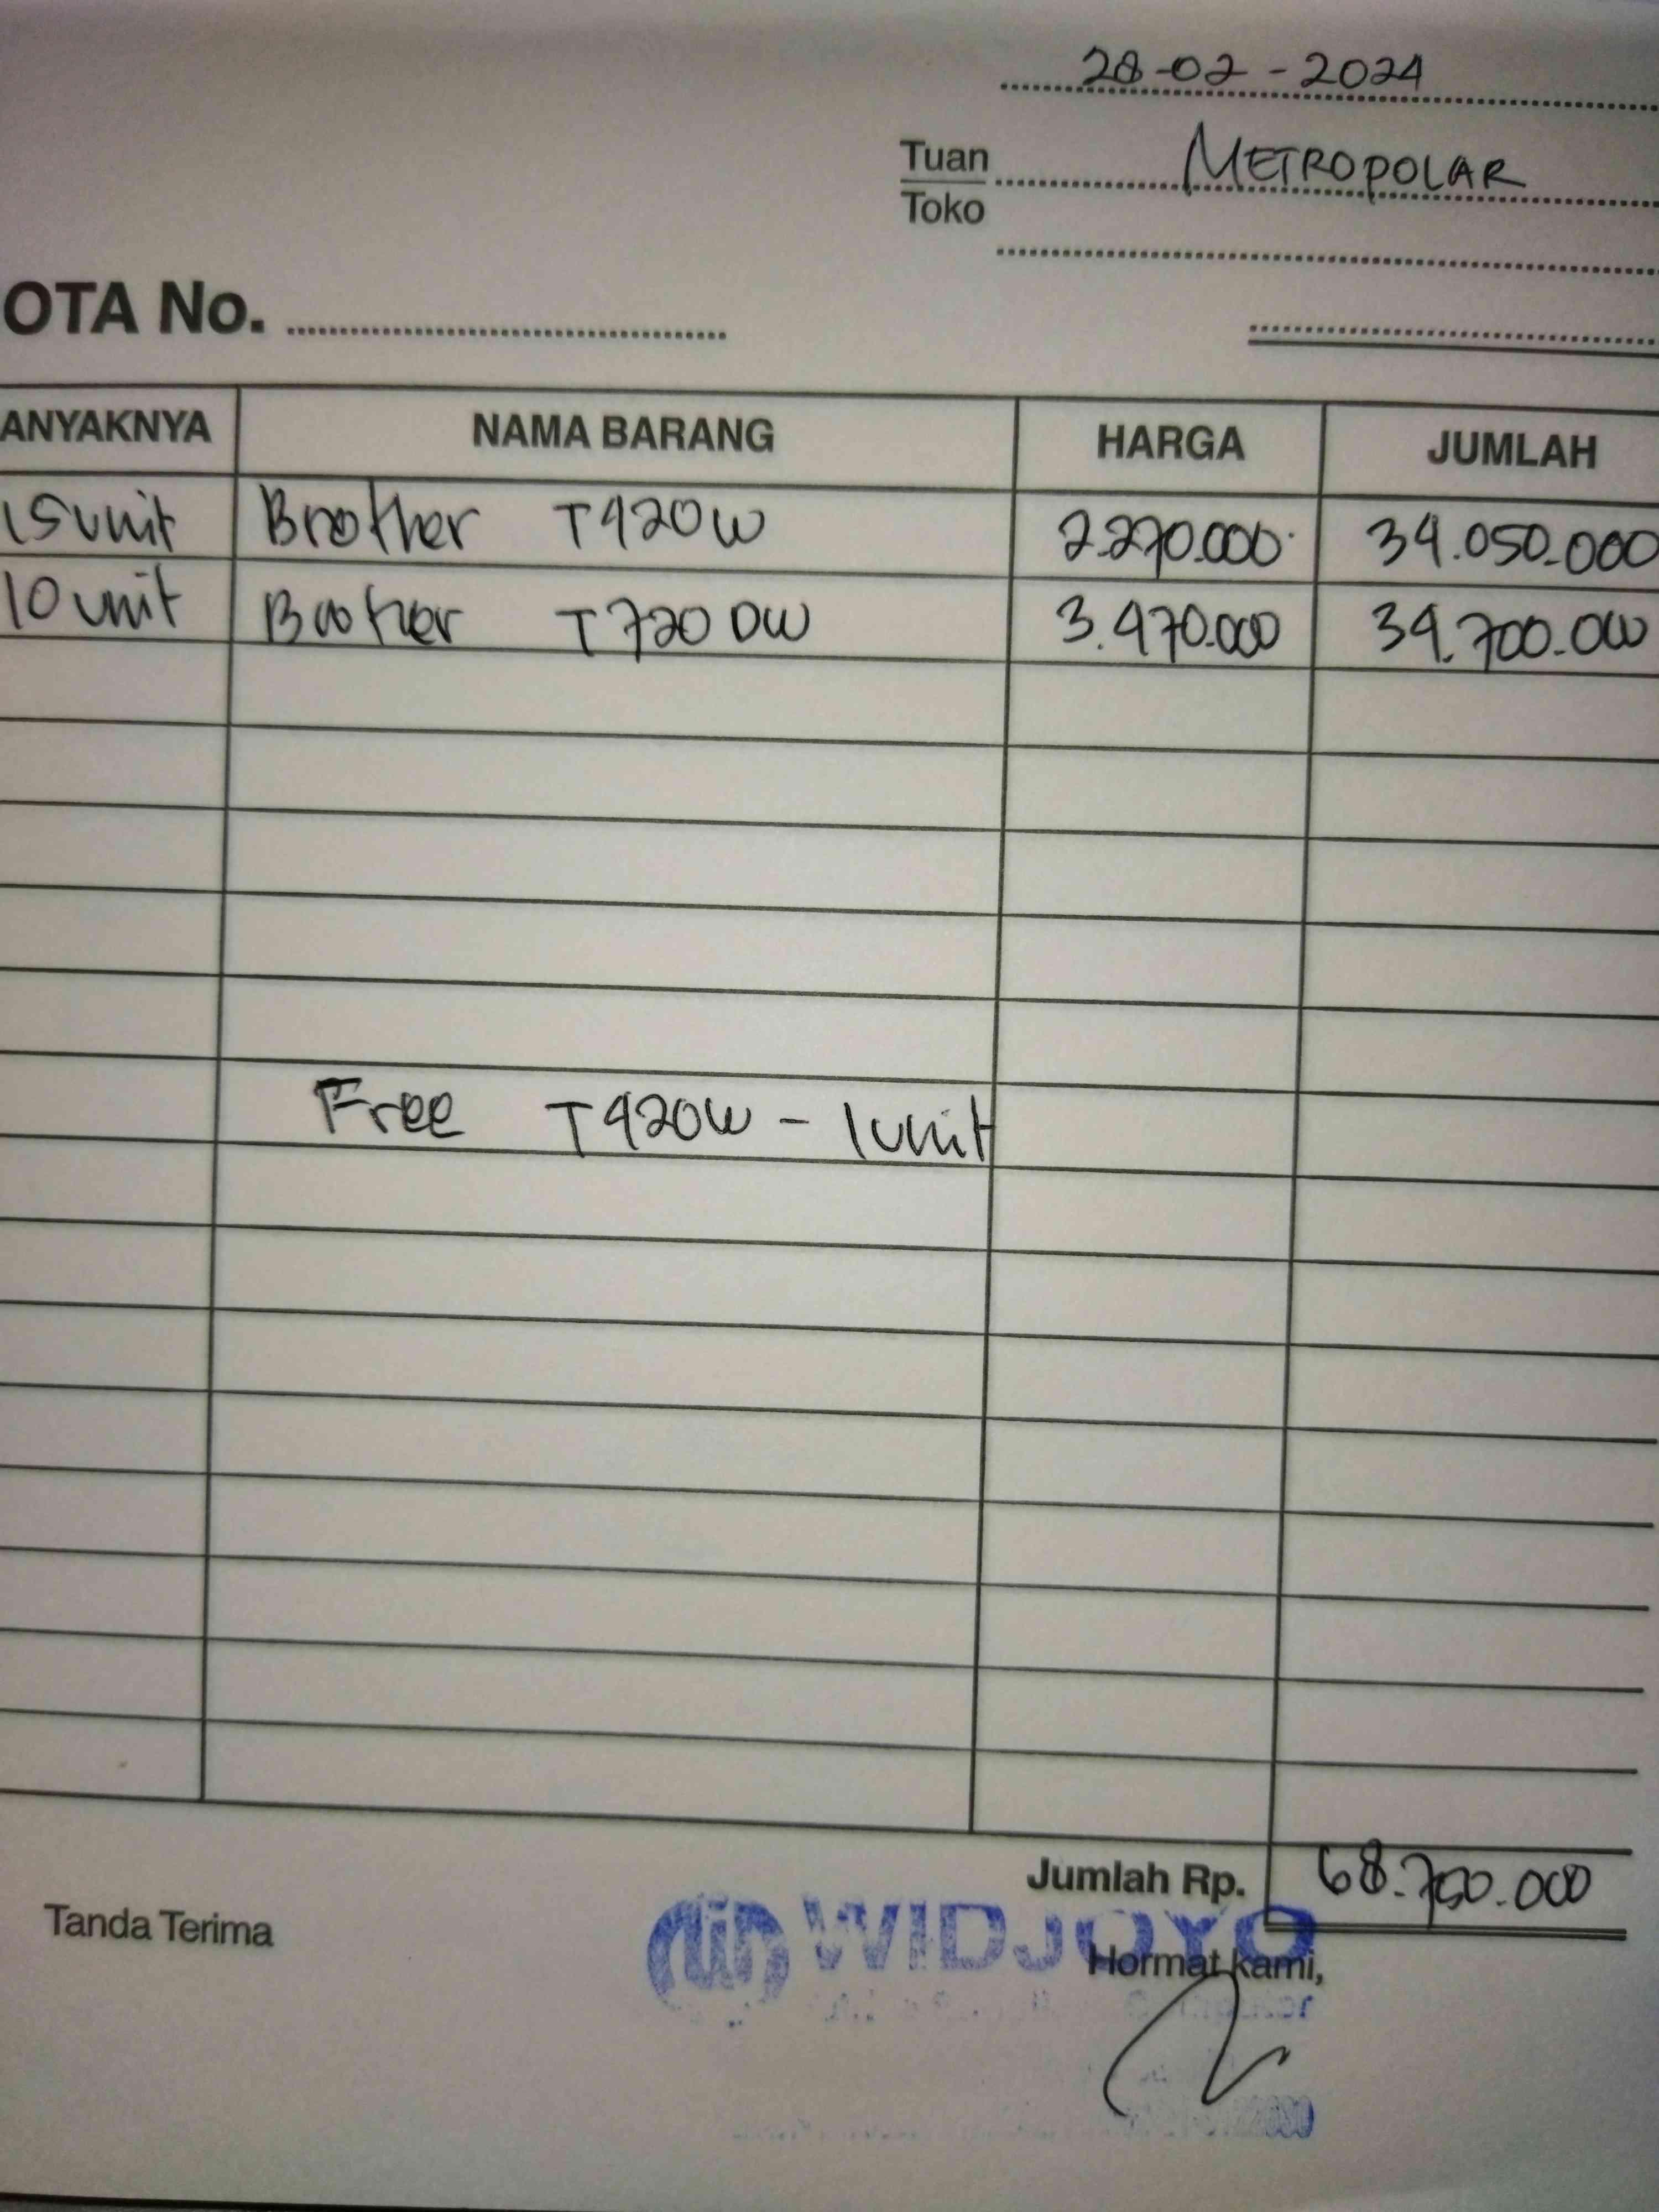 28-02-2024
Tuan METROPOLAR
Toko
OTA No.
ANYAKNYA NAMA BARANG HARGA JUMLAH
15 unit Brother T420W 2.270.000 34.050.000
10 unit Brother T720DW 3.470.000 34.700.000
Free T420W - 1 unit
Jumlah Rp. 68.750.000
Tanda Terima
WIDJOYO
Hormat kami,